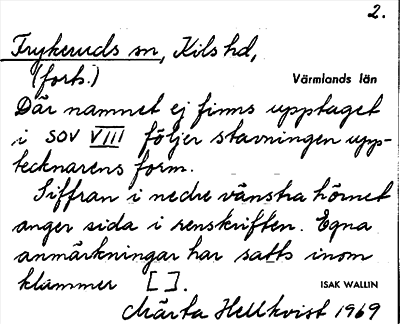 2.
Frykeruds sn, Kils hd,
(forts.)
Värmlands län
Där namnet ej finns upptaget
i SOV VIII följer stavningen upp-
tecknarens form.
Siffran i nedre vänstra hörnet
anger sida i renskriften. Egna
anmärkningar har satts inom
klammer [ ].
ISAK WALLIN
Märta Hellkvist 1969